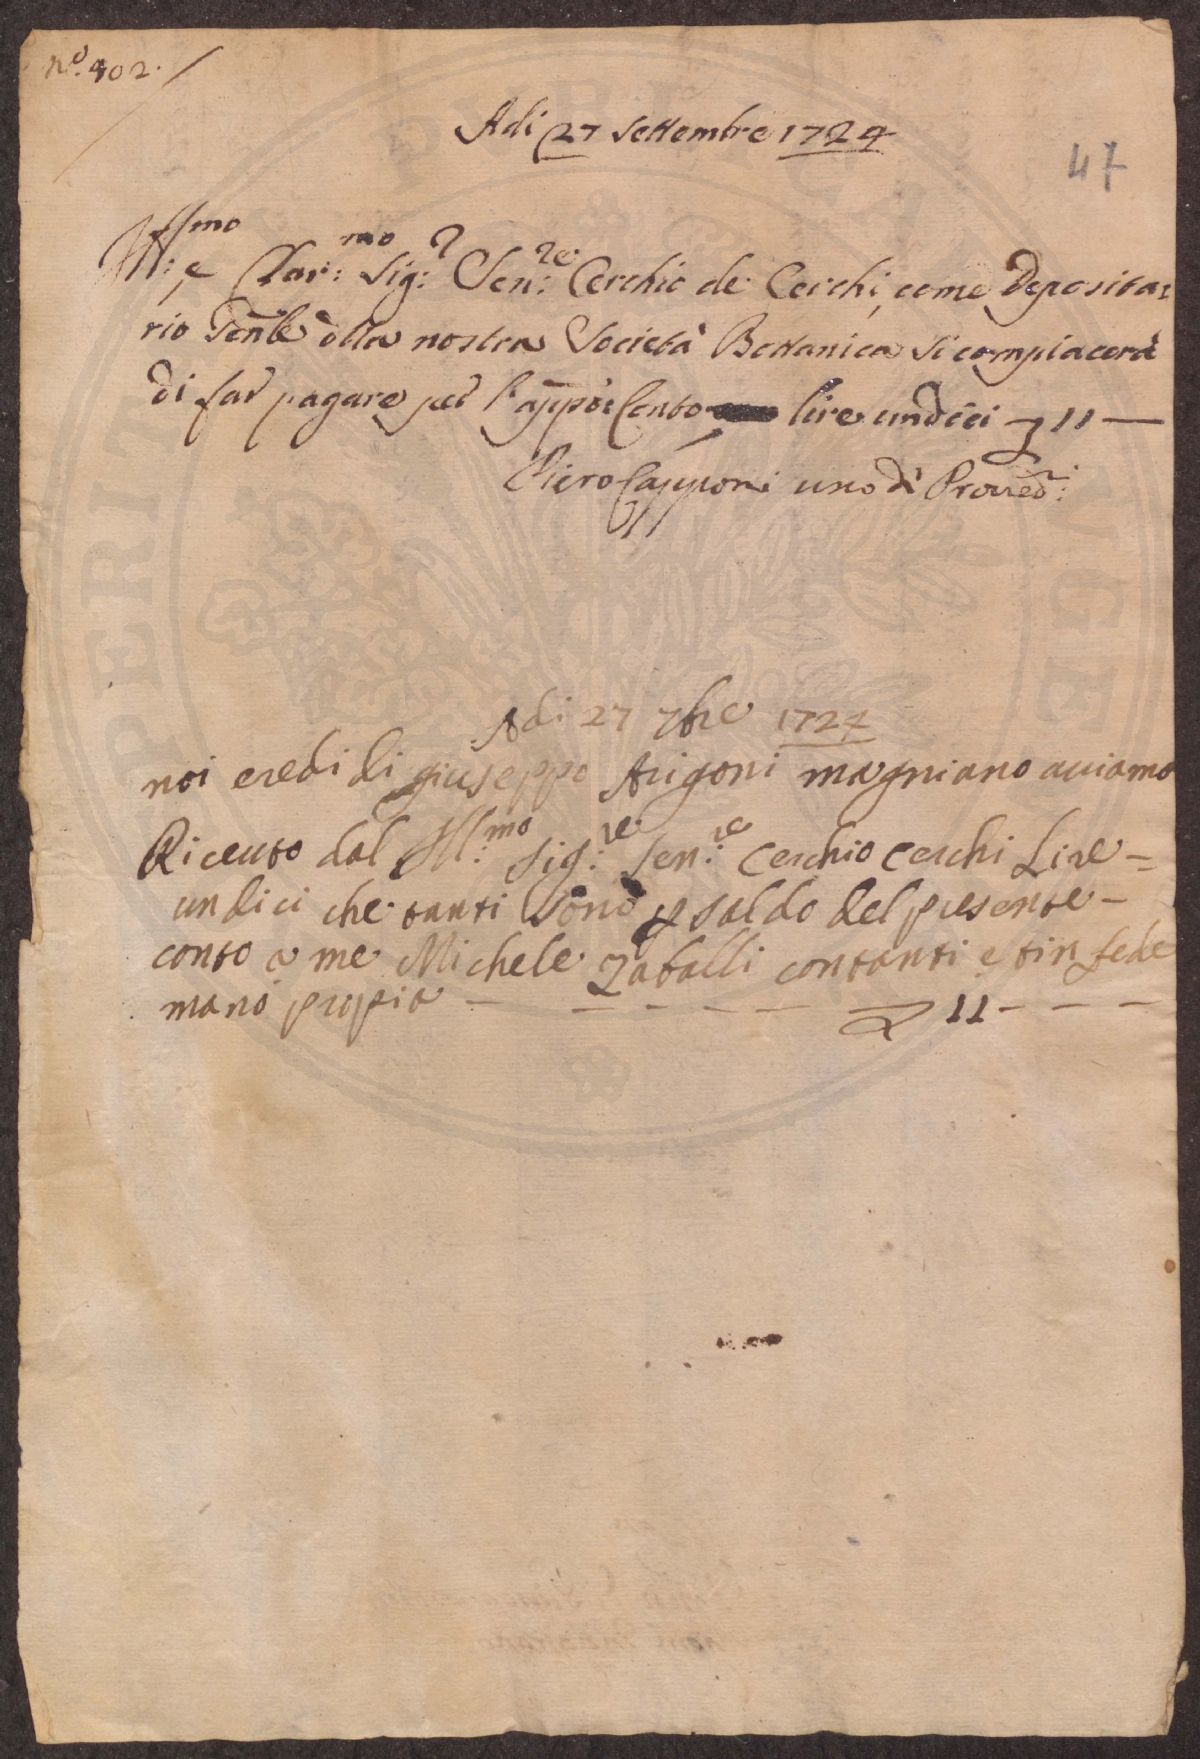 N.º 402.
Adi 27 Settembre 1724
47
Ill:mo e Clar:mo Sig:r Sen:re Cerchio de Cerchi, come Deposita=
rio Gen̄le d̄lla nostra Società Bottanica si compiacerà
di far pagare per l'app̄o: Conto lire undici £ 11 —
Piero Capponi uno d̀ Proved:i
Adi 27 7bre 1724
noi eredi di giuseppo Arigoni magniano auiamo
Riceuto dal Ill:mo Sig:re Sen:re Cerchio Cerchi Lire –
undici che tanti Sono p saldo del presente –
conto a me Michele Zaballi contanti e in fede
mano propia — — — — — £ 11 – — — —
PERIALE